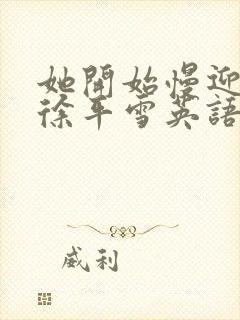 她開始慢迎
徐平雪英語
威利